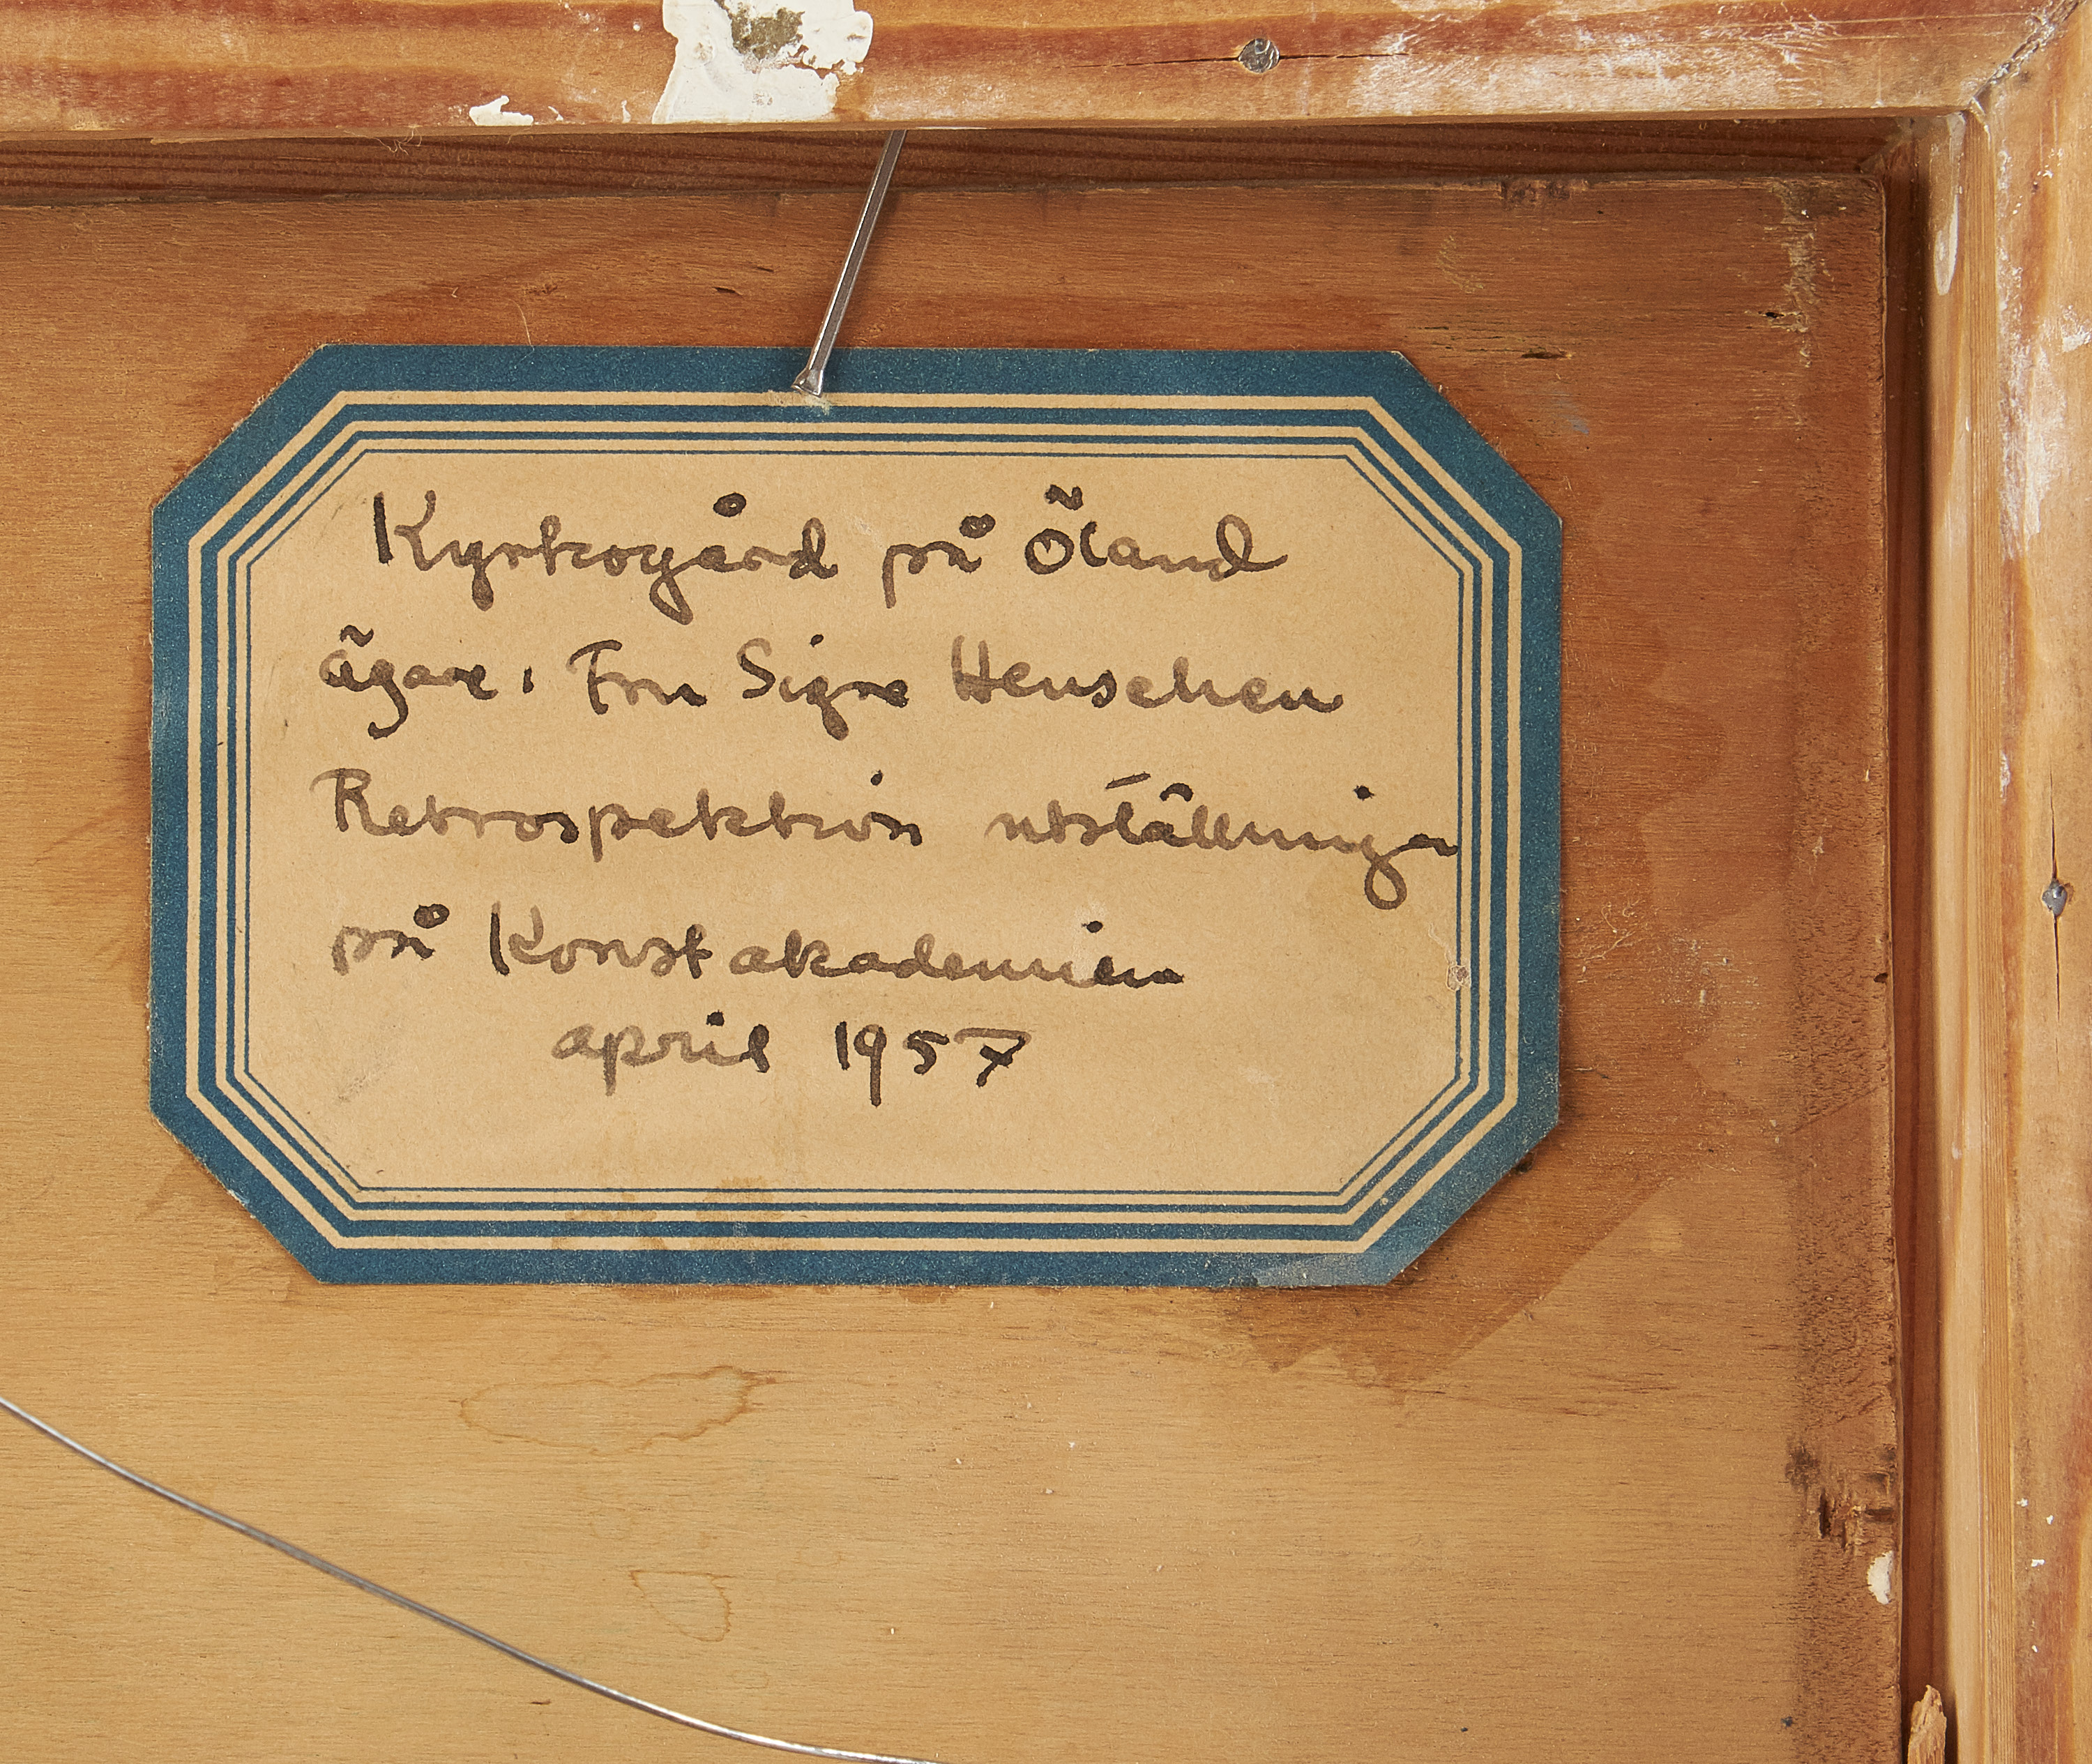 Kyrkogård på Öland
ägare: Fru Signe Henschen
Retrospektiv utställninga
på Konstakademien
april 1957